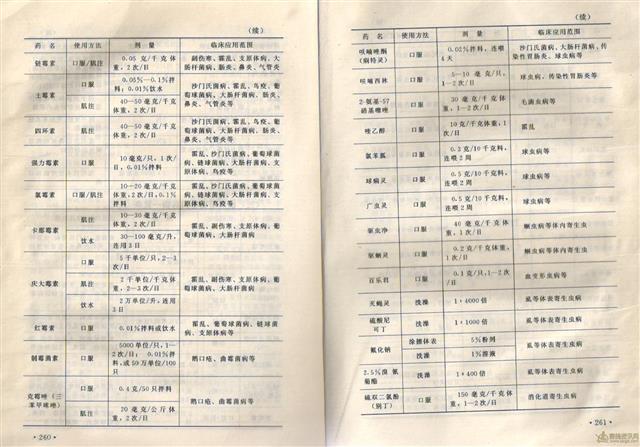 (续)
药 名 使用方法 剂 量 临床应用范围
链霉素 口服/肌注 0.05 克/千克体重，2次/日 副伤寒、霍乱、支原体病、大肠杆菌病、肠炎、鼻炎、气管炎
土霉素 口服 0.05%—0.1%拌料；0.01%饮水
肌注 40—50毫克/千克体重，2次/日
沙门氏菌病、霍乱、鸟疫、葡萄球菌病、大肠杆菌病、肠炎、鼻炎、气管炎等
四环素 肌注 40—50毫克/千克体重，2次/日 沙门氏菌病、霍乱、鸟疫、葡萄球菌病、大肠杆菌病、肠炎、鼻炎、气管炎等
强力霉素 口服 10毫克/只，1次/日，0.01%拌料 霍乱、沙门氏菌病、葡萄球菌病、链球菌病、大肠杆菌病、支原体病、鸟疫等
氯霉素 口服/肌注 10—20毫克/千克体重，2次/日，0.1%拌料 沙门氏菌病、霍乱、葡萄球菌病、链球菌病、大肠杆菌病、支原体病、鸟疫等
卡那霉素 肌注 10—30毫克/千克体重，2次/日
饮水 30—100毫克/升，连用3日
霍乱、副伤寒、支原体病、葡萄球菌病、大肠杆菌病
庆大霉素 口服 5千单位/只，2—3次/日
肌注 2千单位/千克体重，2—3次/日
饮水 2万单位/升；连用3日
霍乱、副伤寒、支原体病、葡萄球菌病、大肠杆菌病等
红霉素 口服 0.01%拌料或饮水 霍乱、葡萄球菌病、链球菌病、支原体病等
制霉菌素 口服 5000单位/只，1—2次/日； 0.01%拌料，或50万单位/100只 鹅口疮、曲霉菌病等
克霉唑（三苯甲咪唑） 口服 0.4克/50只拌料
肌注 20毫克/公斤体重，2次/日
鹅口疮、曲霉菌病等
· 260 ·
(续)
药 名 使用方法 剂 量 临床应用范围
呋喃唑酮（痢特灵） 口服 0.02%拌料，连喂4天 沙门氏菌病、大肠杆菌病，传染性胃肠炎、球虫病等
呋喃西林 口服 5—10毫克/只，1—2次/日 球虫病，传染性胃肠炎等
2-氨基-5- 硝基噻唑 口服 30毫克/千克体重，2次/日 毛滴虫病等
喹乙醇 口服 10克/千克体重，1次/日 霍乱
氯苯胍 口服 0.2克/10千克料，连喂2周 球虫病等
球痢灵 口服 0.5克/10千克料，连喂2周 球虫病等
广虫灵 口服 0.5克/10千克料，连喂2周 球虫病等
驱虫净 口服 40毫克/千克体重，1次/日 蛔虫病等体内寄生虫
驱蛔灵 口服 0.2克/千克体重，1次/日 蛔虫病等体内寄生虫
百乐君 口服 0.1克/只，1—2次/日 血变形虫病等
灭蝇灵 洗澡 1：4000倍 虱等体表寄生虫病
硫酸尼可丁 洗澡 1：1000倍 虱等体表寄生虫病
氟化钠 涂擦体表 5%粉剂
洗澡 1%溶液
虱等体表寄生虫病
2.5%溴氰菊酯 洗澡 1：400倍 虱等体表寄生虫病等
硫双二氯酚（别丁） 口服 150毫克/千克体重，1次/日 消化道寄生虫病
· 261 ·